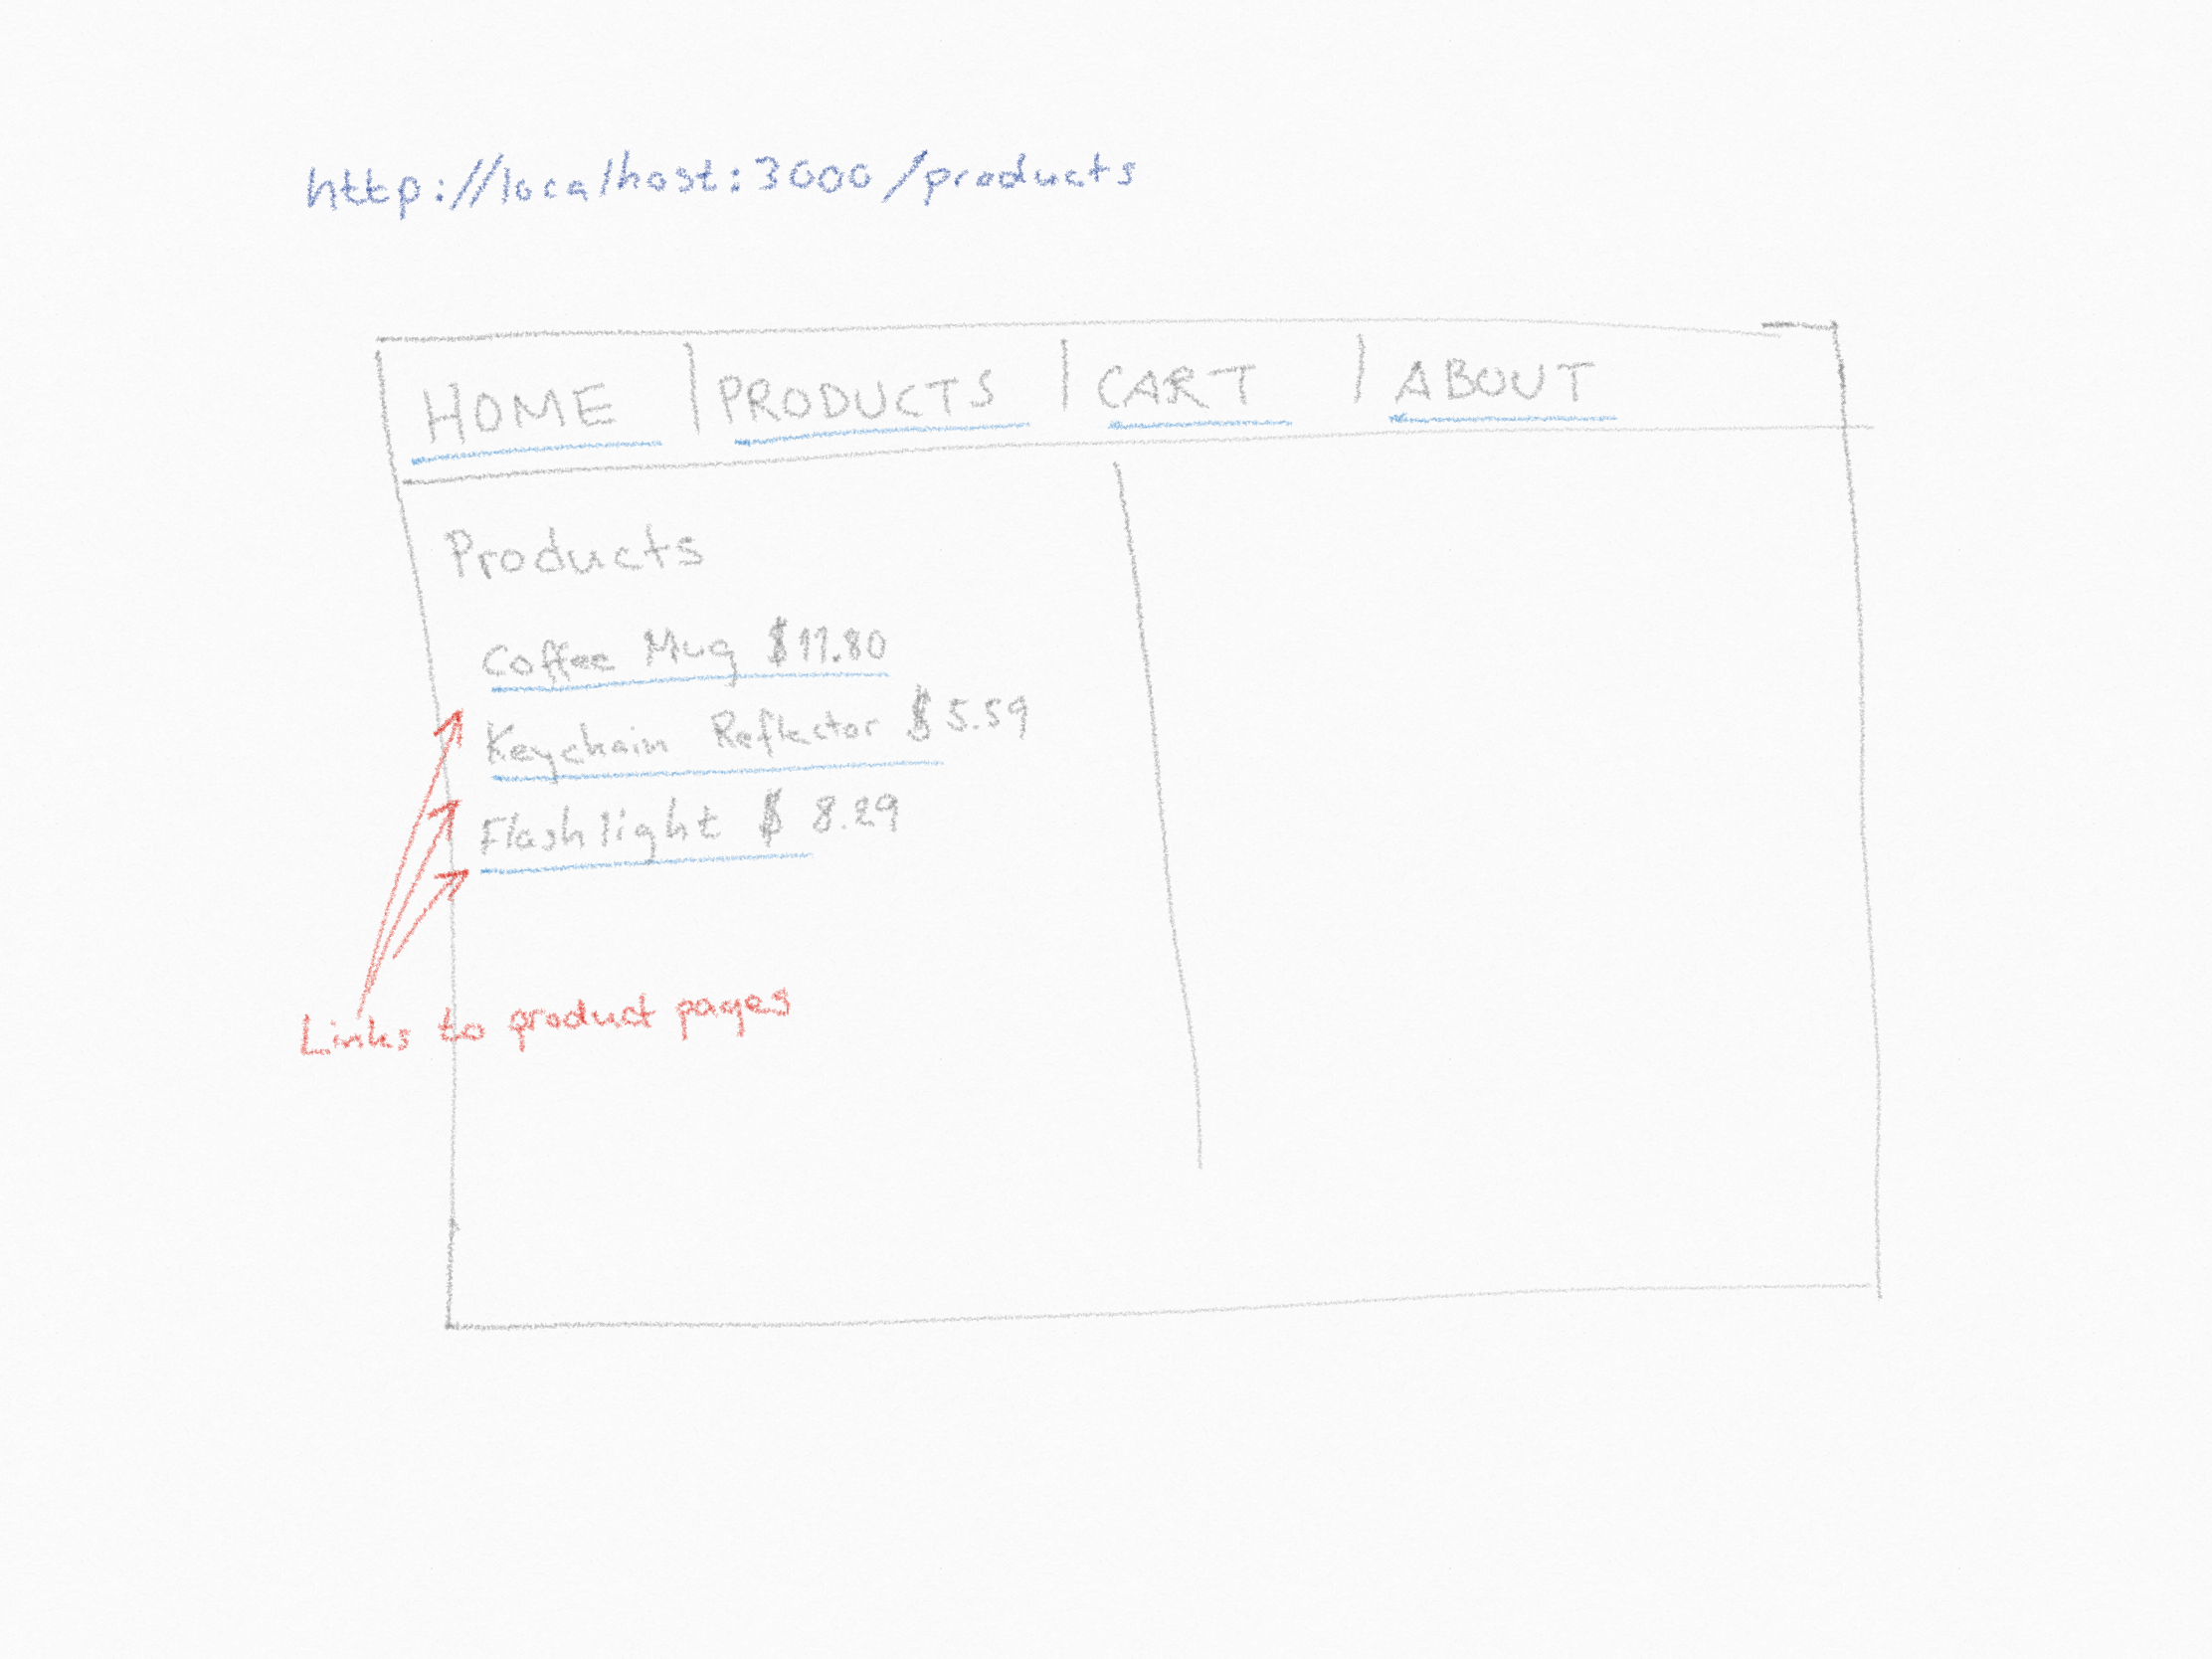 http://localhost:3000/products
HOME | PRODUCTS | CART | ABOUT
Products
Coffee Mug $11.80
Keychain Reflector $5.59
Flashlight $8.29
Links to product pages